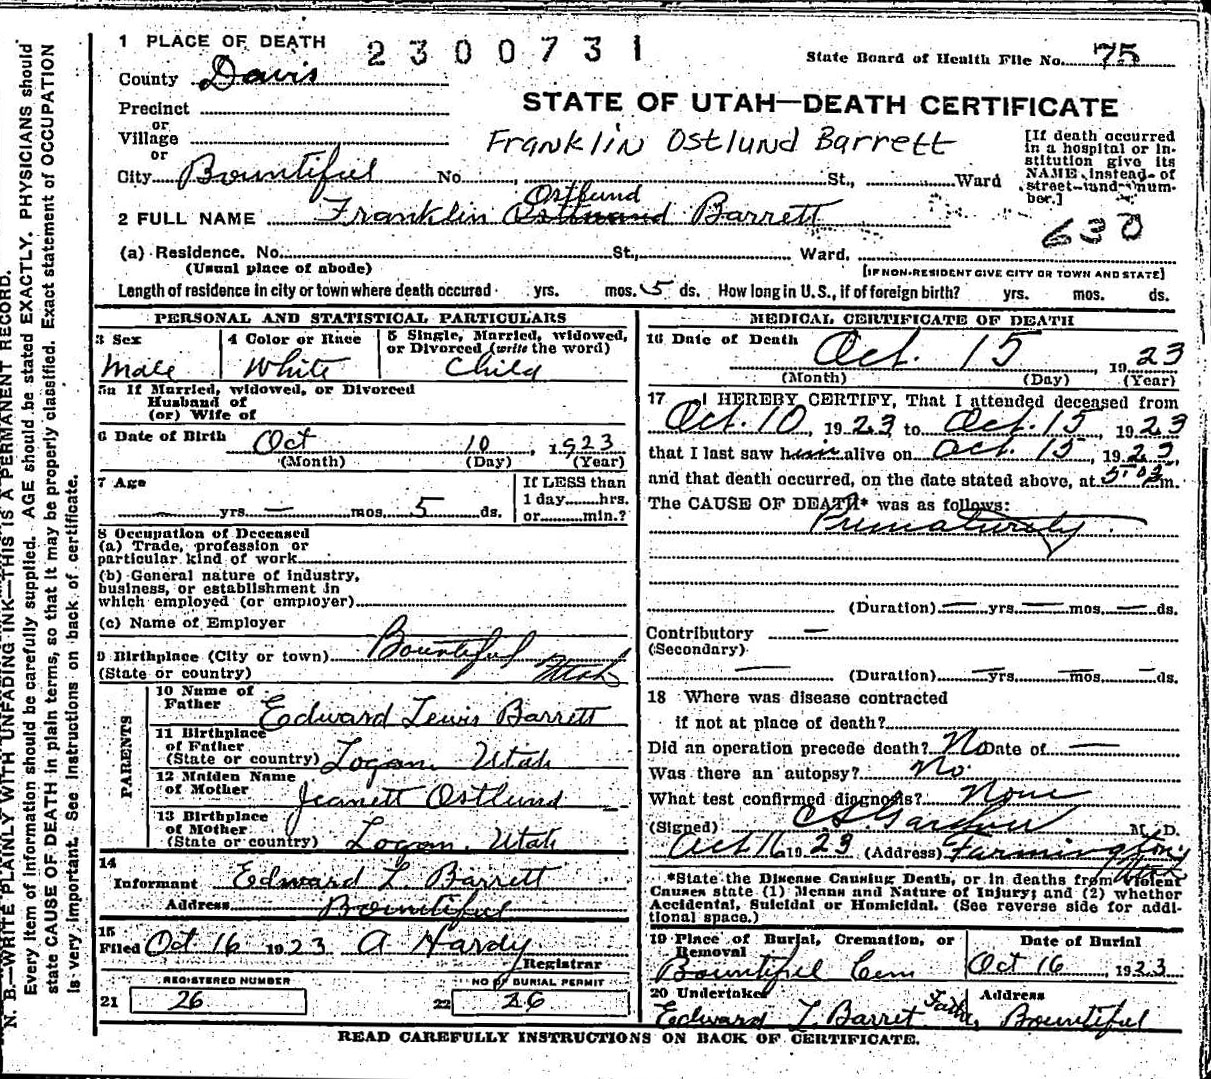 1 PLACE OF DEATH
2300731
State Board of Health File No. 75
County Davis
STATE OF UTAH—DEATH CERTIFICATE
Precinct
or
Village
or
Franklin Ostlund Barrett
[If death occurred
in a hospital or in-
stitution give its
NAME instead of
street and num-
ber.]
City Bountiful No. , St., Ward
Ostlund
2 FULL NAME Franklin Barrett
630
(a) Residence. No. St., Ward.
(Usual place of abode)
[IF NON-RESIDENT GIVE CITY OR TOWN AND STATE]
Length of residence in city or town where death occured yrs. mos. 5 ds. How long in U.S., if of foreign birth? yrs. mos. ds.
PERSONAL AND STATISTICAL PARTICULARS
3 Sex
Male
4 Color or Race
White
5 Single, Married, widowed,
or Divorced (write the word)
Child
5a If Married, widowed, or Divorced
Husband of
(or) Wife of
6 Date of Birth Oct 10, 1923
(Month) (Day) (Year)
7 Age
— yrs. — mos. 5 ds.
If LESS than
1 day hrs.
or min.?
8 Occupation of Deceased
(a) Trade, profession or
particular kind of work
(b) General nature of industry,
business, or establishment in
which employed (or employer)
(c) Name of Employer
9 Birthplace (City or town) Bountiful
(State or country) Utah
PARENTS
10 Name of
Father Edward Lewis Barrett
11 Birthplace
of Father
(State or country) Logan, Utah
12 Maiden Name
of Mother Jeanett Ostlund
13 Birthplace
of Mother
(State or country) Logan, Utah
14
Informant Edward L. Barrett
Address Bountiful
15
Filed Oct 16 1923 A Hardy
Registrar
REGISTERED NUMBER
21 26
NO OF BURIAL PERMIT
22 26
MEDICAL CERTIFICATE OF DEATH
16 Date of Death Oct. 15, 1923
(Month) (Day) (Year)
17 I HEREBY CERTIFY, That I attended deceased from
Oct. 10, 1923 to Oct. 15, 1923
that I last saw him alive on Oct. 15, 1923,
and that death occurred, on the date stated above, at m.
The CAUSE OF DEATH* was as follows:
Prematurity
(Duration) — yrs. — mos. — ds.
Contributory —
(Secondary)
— (Duration) — yrs. — mos. — ds.
18 Where was disease contracted
if not at place of death?
Did an operation precede death? No Date of —
Was there an autopsy? No.
What test confirmed diagnosis? None
(Signed) M. D.
Oct 16 1923 (Address) Farmington
Utah
*State the Disease Causing Death, or in deaths from Violent
Causes state (1) Means and Nature of Injury; and (2) whether
Accidental, Suicidal or Homicidal. (See reverse side for addi-
tional space.)
19 Place of Burial, Cremation, or
Removal
Bountiful Cem
Date of Burial
Oct 16, 1923
20 Undertaker
Edward L. Barret Father,
Address
Bountiful
READ CAREFULLY INSTRUCTIONS ON BACK OF CERTIFICATE.
N. B.—WRITE PLAINLY WITH UNFADING INK—THIS IS A PERMANENT RECORD.
Every item of information should be carefully supplied. AGE should be stated EXACTLY. PHYSICIANS should
state CAUSE OF DEATH in plain terms, so that it may be properly classified. Exact statement of OCCUPATION
is very important. See instructions on back of certificate.